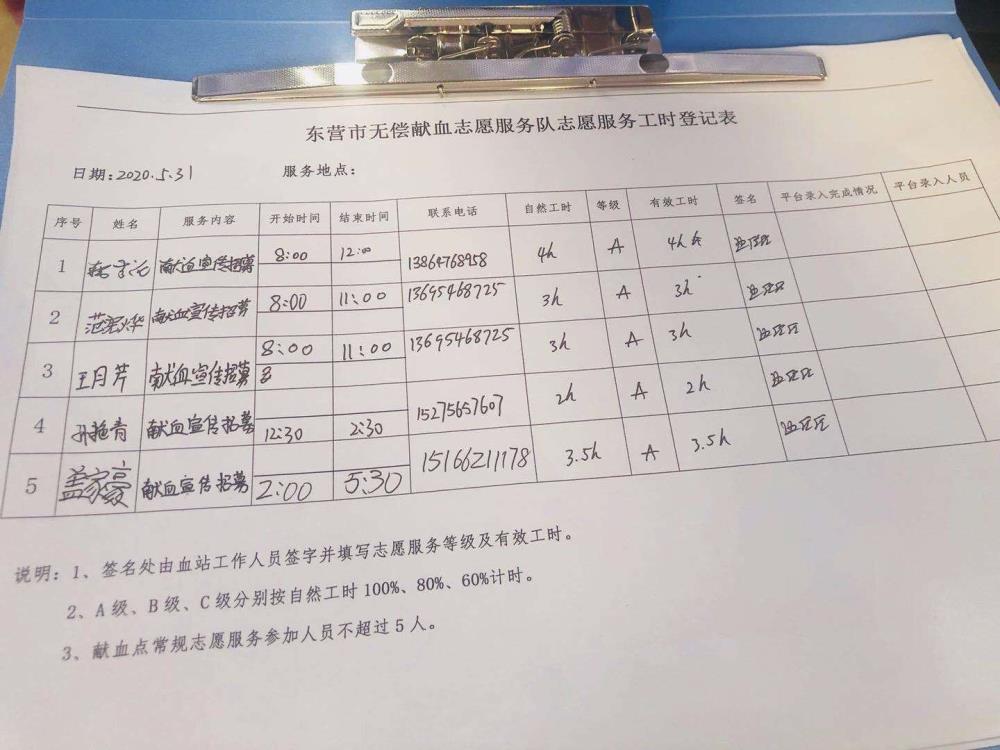 东营市无偿献血志愿服务队志愿服务工时登记表
日期:2020.5.31 服务地点：
序号 姓名 服务内容 开始时间 结束时间 联系电话 自然工时 等级 有效工时 签名 平台录入完成情况 平台录入人员
1 献血宣传招募 8:00 12:00 13864768958 4h A 4h
2 献血宣传招募 8:00 11:00 13695468725 3h A 3h
3 王月芹 献血宣传招募 8:00 11:00 13695468725 3h A 3h
8
4 孙艳青 献血宣传招募 12:30 2:30 15275657607 2h A 2h
5 盖家豪 献血宣传招募 2:00 5:30 15166211178 3.5h A 3.5h
说明：1、签名处由血站工作人员签字并填写志愿服务等级及有效工时。
2、A级、B级、C级分别按自然工时100%、80%、60%计时。
3、献血点常规志愿服务参加人员不超过5人。